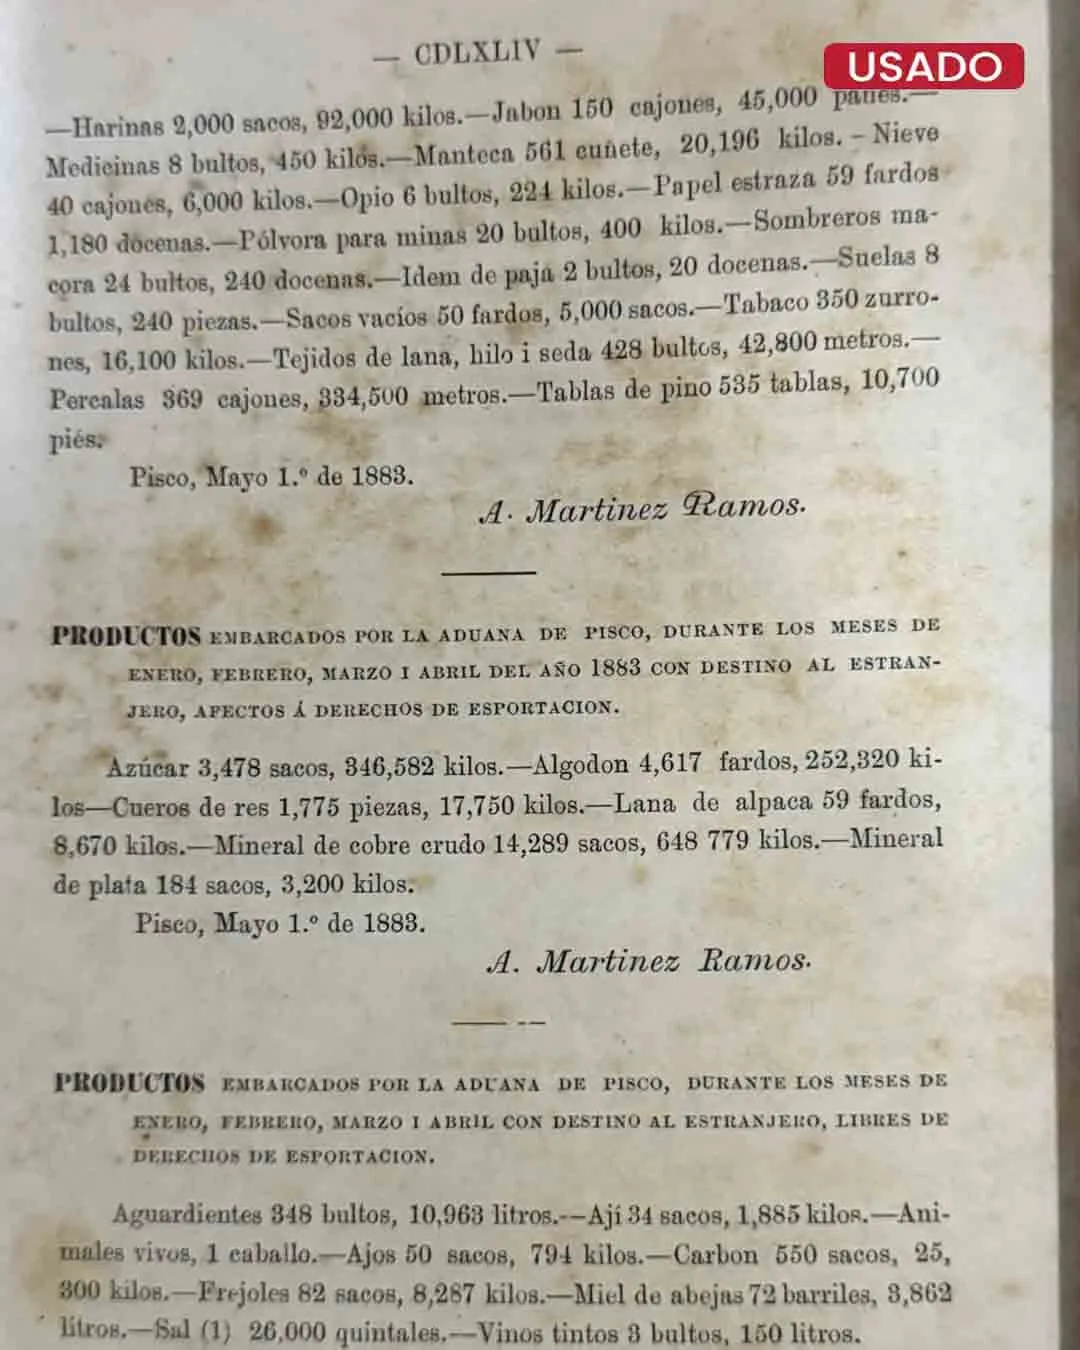 — CDLXLIV —
USADO
—Harinas 2,000 sacos, 92,000 kilos.—Jabon 150 cajones, 45,000 panes.—
Medicinas 8 bultos, 450 kilos.—Manteca 561 cuñete, 20,196 kilos. – Nieve
40 cajones, 6,000 kilos.—Opio 6 bultos, 224 kilos.—Papel estraza 59 fardos
1,180 docenas.—Pólvora para minas 20 bultos, 400 kilos.—Sombreros ma-
cora 24 bultos, 240 docenas.—Idem de paja 2 bultos, 20 docenas.—Suelas 8
bultos, 240 piezas.—Sacos vacíos 50 fardos, 5,000 sacos.—Tabaco 350 zurro-
nes, 16,100 kilos.—Tejidos de lana, hilo i seda 428 bultos, 42,800 metros.—
Percalas 369 cajones, 334,500 metros.—Tablas de pino 535 tablas, 10,700
piés.
Pisco, Mayo 1.º de 1883.
A. Martinez Ramos.
PRODUCTOS EMBARCADOS POR LA ADUANA DE PISCO, DURANTE LOS MESES DE
ENERO, FEBRERO, MARZO I ABRIL DEL AÑO 1883 CON DESTINO AL ESTRAN-
JERO, AFECTOS Á DERECHOS DE ESPORTACION.
Azúcar 3,478 sacos, 346,582 kilos.—Algodon 4,617 fardos, 252,320 ki-
los—Cueros de res 1,775 piezas, 17,750 kilos.—Lana de alpaca 59 fardos,
8,670 kilos.—Mineral de cobre crudo 14,289 sacos, 648 779 kilos.—Mineral
de plata 184 sacos, 3,200 kilos.
Pisco, Mayo 1.º de 1883.
A. Martinez Ramos.
PRODUCTOS EMBARCADOS POR LA ADUANA DE PISCO, DURANTE LOS MESES DE
ENERO, FEBRERO, MARZO I ABRIL CON DESTINO AL ESTRANJERO, LIBRES DE
DERECHOS DE ESPORTACION.
Aguardientes 348 bultos, 10,963 litros.--Ají 34 sacos, 1,885 kilos.—Ani-
males vivos, 1 caballo.—Ajos 50 sacos, 794 kilos.—Carbon 550 sacos, 25,
300 kilos.—Frejoles 82 sacos, 8,287 kilos.—Miel de abejas 72 barriles, 3,862
litros.—Sal (1) 26,000 quintales.—Vinos tintos 3 bultos, 150 litros.